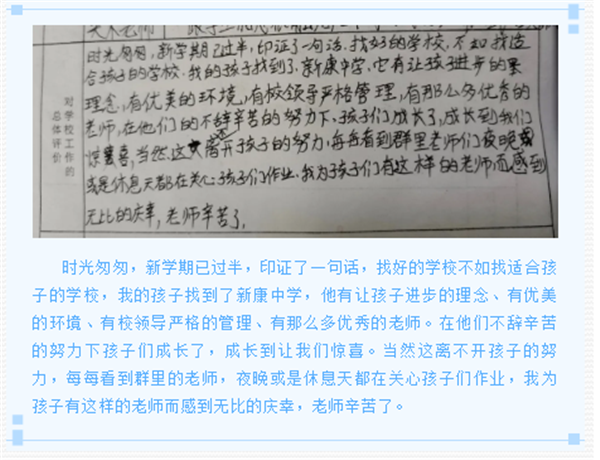 时光匆匆，新学期已过半，印证了一句话，找好的学校，不如找适
合孩子的学校，我的孩子找到了，新康中学，它有让孩子进步的
理念，有优美的环境，有校领导严格管理，有那么多优秀的
对学校工作的
总体评价
老师，在他们的不辞辛苦的努力下，孩子们成长了，成长到我们
惊喜，当然，这离开孩子的努力，每每看到群里老师们夜晚
或是休息天都在关心孩子们作业，我为孩子们有这样的老师而感到
无比的庆幸，老师辛苦了，
时光匆匆，新学期已过半，印证了一句话，找好的学校不如找适合孩
子的学校，我的孩子找到了新康中学，他有让孩子进步的理念、有优美
的环境、有校领导严格的管理、有那么多优秀的老师。在他们不辞辛苦
的努力下孩子们成长了，成长到让我们惊喜。当然这离不开孩子的努
力，每每看到群里的老师，夜晚或是休息天都在关心孩子们作业，我为
孩子有这样的老师而感到无比的庆幸，老师辛苦了。